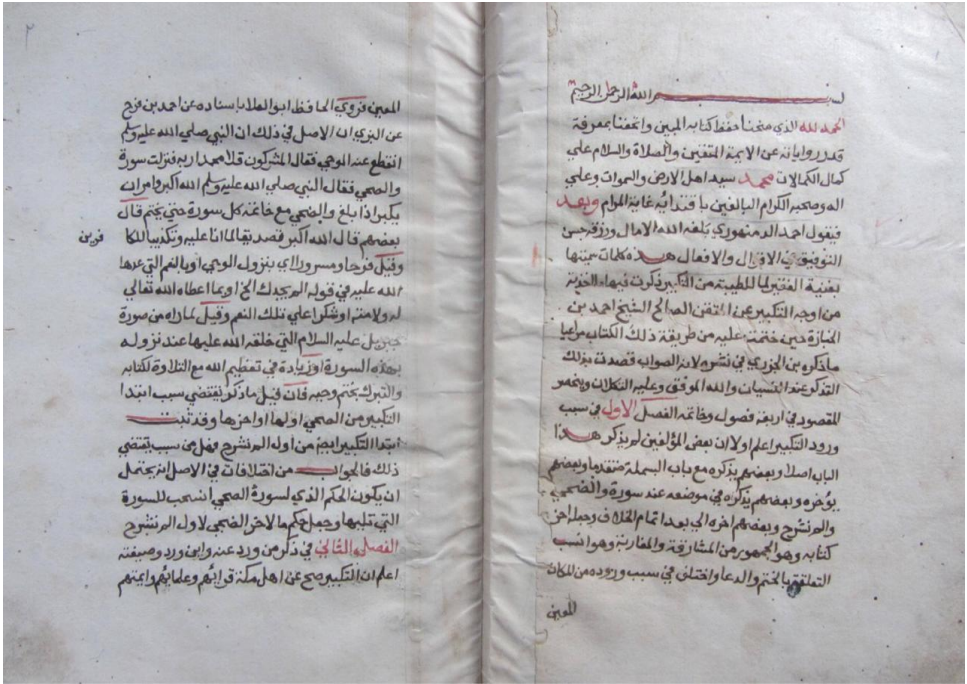 بسم الله الرحمن الرحيم
الحمد لله الذي منحنا حفظ كتابه المبين واتحفنا بمعرفة
قدر رواياته عن الايمة المتقنين والصلاة والسلام علي
كمال الكمالات محمد سيد اهل الارض والسموات وعلي
اله وصحبه الكرام البالغين باقتدائه غاية المرام وبعد
فيقول احمد الدمنهوري بلغه الله الامال ورزقه حسن
التوفيق في الاقوال والافعال هذه كلمات سميتها
بغنية الفقير لما للطيبة من التكبير ذكرت فيها
من اوجه التكبير عن المتقن الصالح الشيخ احمد بن
الخبازة حين ختمت عليه من طريقة ذلك الكتاب مراعيا
ما ذكره بن الجزري في نشره لانه الصواب قصدت بذلك
التذكر عند النسيان والله الموفق وعليه التكلان وينحصر
المقصود في اربعة فصول وخاتمه الفصل الاول في سبب
ورود التكبير اعلم اولا ان بعض المؤلفين لم يذكر هذا
الباب اصلا وبعضهم يذكره مع باب البسملة متقدما وبعضهم
يؤخره وبعضهم يذكره في موضعه عند سورة والضحي
والم نشرح وبعضهم اخره الي بعد اتمام الخلاف وجعله اخر
كتابه وهو الجمهور من المشارقة والمغاربة وهو انسب
لتعلقه بالختم والدعا واختلف في سبب وروده من المكان
المعين
المعين فروي الحافظ ابو العلا باسناده عن احمد بن فرج
عن البزي ان الاصل في ذلك ان النبي صلي الله عليه وسلم
انقطع عنه الوحي فقال المشركون قلا محمدا ربه فنزلت سورة
والضحي فقال النبي صلي الله عليه وسلم الله اكبر وامر ان
يكبر اذا بلغ والضحي مع خاتمة كل سورة حتي يختم قال
بعضهم قال الله اكبر تصديقا لما انا عليه وتكذيبا للكا
فرين
وقيل فرحا وسرورا اي بنزول الوحي او بالنعم التي عدها
الله عليه في قوله الم يجدك الخ او بما اعطاه الله تعالي
له ولامته او شكرا علي تلك النعم وقيل لما راه من صورة
جبريل عليه السلام التي خلقه الله عليها عند نزوله
بهذه السورة او زيادة في تعظيم الله مع التلاوة لكتابه
والتبرك بختم وحيه فان قيل ما ذكر يقتضي سبب ابتدا
التكبير من الضحي اولها او اخرها وقد ثبت
ابتدا التكبير ايضا من اول الم نشرح فهل من سبب يقتضي
ذلك فالجواب من اختلافات في الاصل انه يحتمل
ان يكون الحكم الذي لسورة الضحي انسحب للسورة
التي تليها وجعل حكم ما لاخر الضحي لاول الم نشرح
الفصل الثاني في ذكر من ورد عنه واين ورد وصيغته
اعلم ان التكبير صح عن اهل مكة قرائهم وعلمائهم وايمتهم